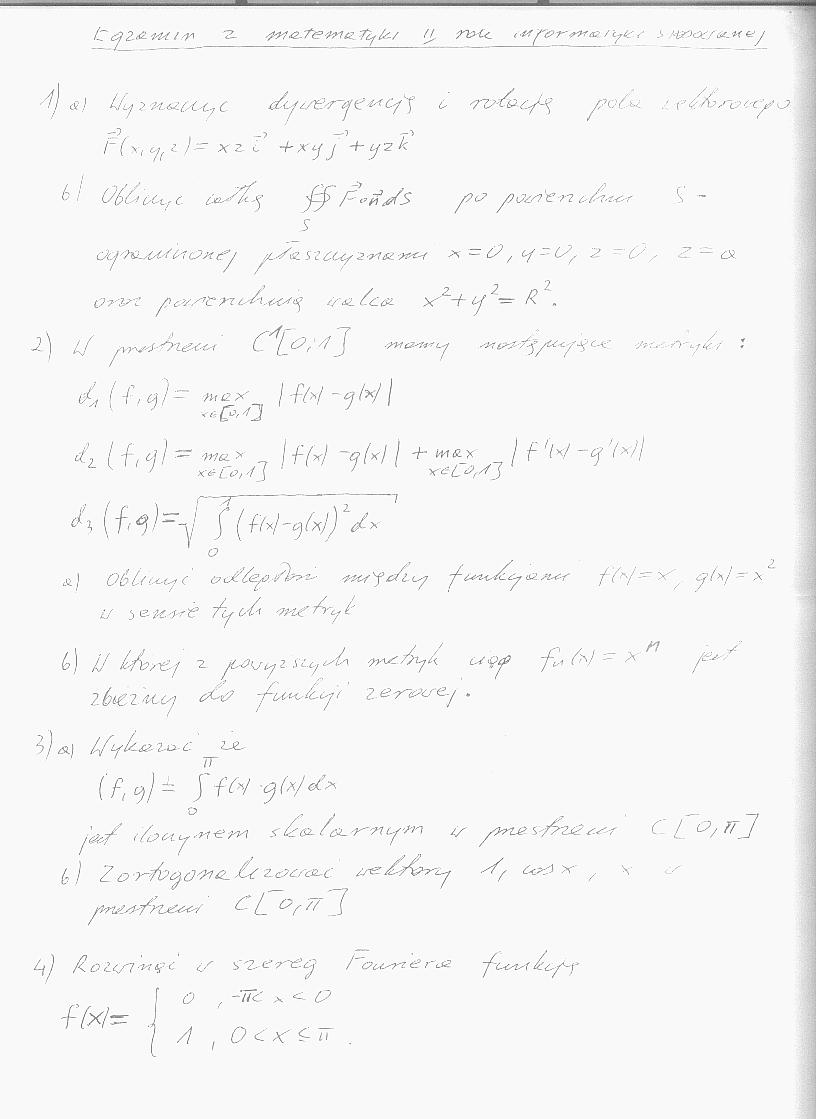 Egzamin z matematyki II rok informatyki stosowanej
1) a) Wyznaczyć dywergencję i rotację pola wektorowego
F⃗(x,y,z)= xz i⃗ + xy j⃗ + yz k⃗
b) Obliczyć całkę ∯_S F⃗∘n⃗ds po powierzchni S -
ograniczonej płaszczyznami x=0, y=0, z=0, z=a
oraz powierzchnią walca x²+y²=R².
2) W przestrzeni C¹[0,1] mamy następujące metryki:
d₁(f,g)= max_{x∈[0,1]} |f(x)-g(x)|
d₂(f,g)= max_{x∈[0,1]} |f(x)-g(x)| + max_{x∈[0,1]} |f'(x)-g'(x)|
d₃(f,g)= √(∫₀¹ (f(x)-g(x))² dx)
a) Obliczyć odległość między funkcjami f(x)=x, g(x)=x²
w sensie tych metryk
b) W której z powyższych metryk ciąg fn(x)=xⁿ jest
zbieżny do funkcji zerowej.
3) a) Wykazać że
(f,g) = ∫₀^π f(x)·g(x)dx
jest iloczynem skalarnym w przestrzeni C[0,π]
b) Zortogonalizować wektory 1, cosx, x w
przestrzeni C[0,π]
4) Rozwinąć w szereg Fouriera funkcję
f(x)= { 0 , -π< x < 0
1 , 0 < x ≤ π .